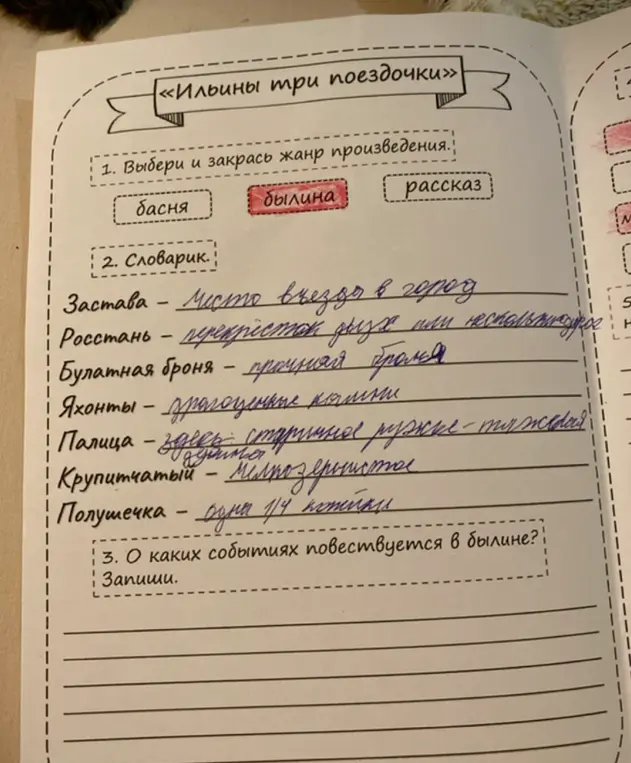 «Ильины три поездочки»
1. Выбери и закрась жанр произведения.
басня былина рассказ
2. Словарик.
Застава – место въезда в город
Росстань – перекрёсток двух или нескольких дорог
Булатная броня – прочная броня
Яхонты – драгоценные камни
Палица – здесь старинное ружье - тяжелая
дубина
Крупитчатый – мелкозернистое
Полушечка – одна 1/4 копейки
3. О каких событиях повествуется в былине?
Запиши.